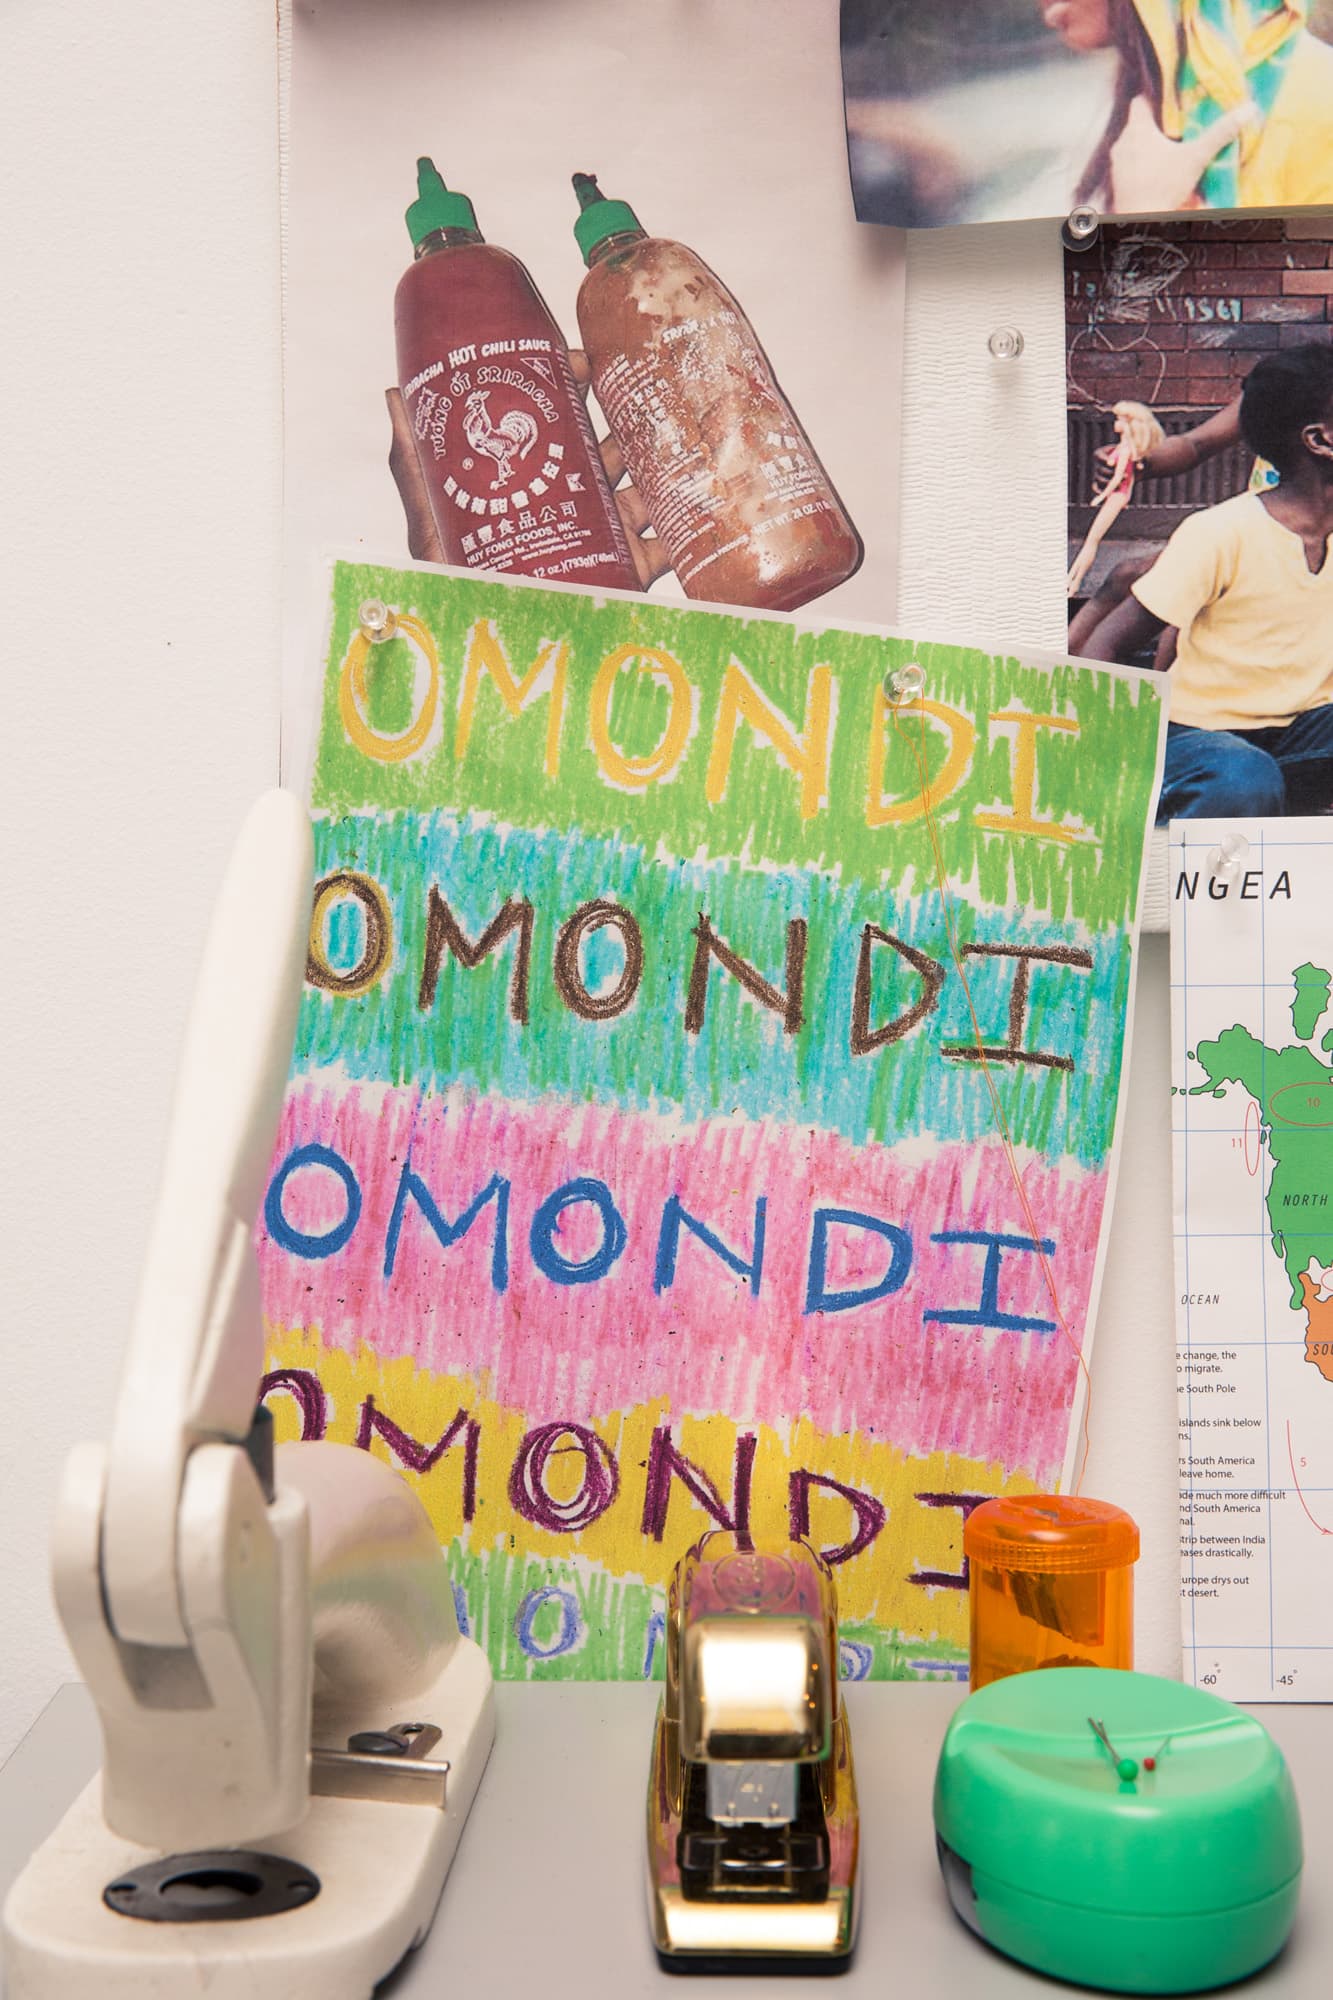 SRIRACHA HOT CHILI SAUCE
TƯƠNG ỚT SRIRACHA
匯豐食品公司
HUY FONG FOODS, INC.
www.huyfong.com
12 oz.)(793g)(740mL)
匯豐
HUY FONG
NET WT. 28 OZ. (1
1561
OMONDI
OMONDI
OMONDI
OMONDI
NGEA
10
11
NORTH
OCEAN
SOU
e change, the
o migrate.
e South Pole
islands sink below
ns.
rs South America
leave home.
5
de much more difficult
nd South America
nal.
strip between India
eases drastically.
urope drys out
t desert.
-60°
-45°